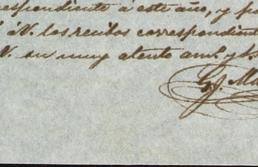 espondiente á este año, y p
á V. los recibos correspondient
V. su muy atento am.º y S.